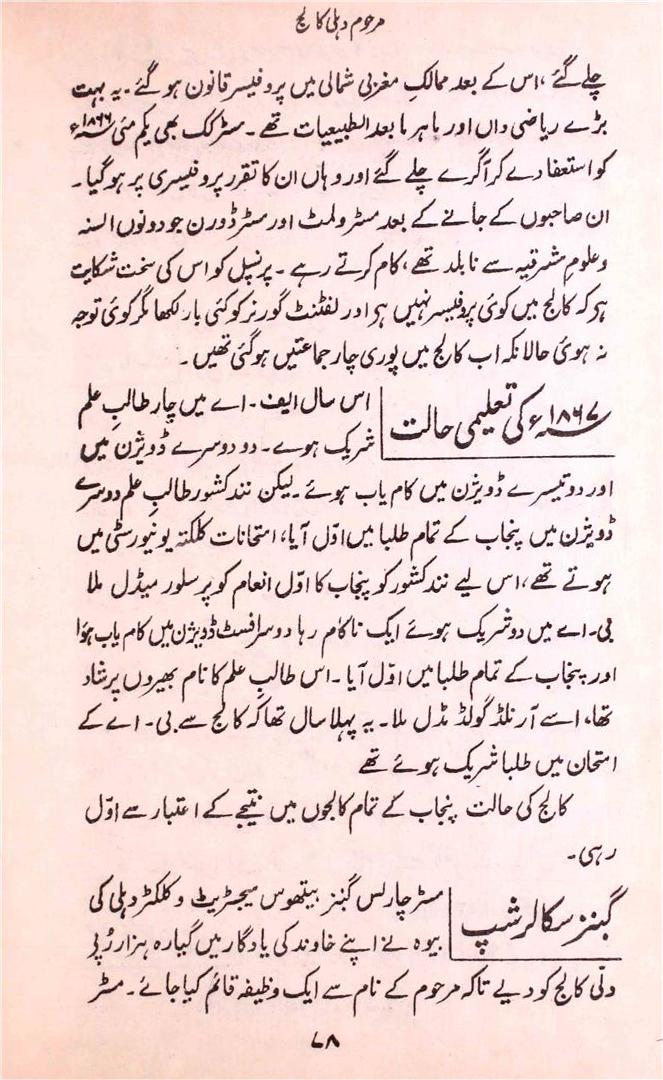 مرحوم دہلی کالج
چلے گئے، اس کے بعد ممالکِ مغربی شمالی میں پروفیسر قانون ہو گئے۔ یہ بہت
بڑے ریاضی داں اور باہر ما بعد الطبیعیات تھے۔ مسٹر کک بھی یکم مئی ۱۸۶۶ء
کو استعفا دے کر آگرے چلے گئے اور وہاں ان کا تقرر پروفیسری پر ہو گیا۔
ان صاحبوں کے جانے کے بعد مسٹر ولمٹ اور مسٹر ڈورن جو دونوں السنہ
و علوم مشرقیہ سے نابلد تھے، کام کرتے رہے۔ پرنسپل کو اس کی سخت شکایت
ہو کہ کالج میں کوئی پروفیسر نہیں ہو اور لفٹنٹ گورنر کو کئی بار لکھا مگر کوئی توجہ
نہ ہوئی حالانکہ اب کالج میں پوری چار جماعتیں ہو گئی تھیں۔
۱۸۶۷ء کی تعلیمی حالت
اس سال ایف۔ اے میں چار طالبِ علم
شریک ہوے۔ دو دوسرے ڈویژن میں
اور دو تیسرے ڈویژن میں کام یاب ہوئے۔ لیکن نند کشور طالبِ علم دوسرے
ڈویژن میں پنجاب کے تمام طلبا میں اوّل آیا، امتحانات کلکتہ یونیورسٹی میں
ہوتے تھے، اس لیے نند کشور کو پنجاب کا اوّل انعام کوپر سلور میڈل ملا
بی۔ اے میں دو شریک ہوئے ایک ناکام رہا دوسرا فسٹ ڈویژن میں کام یاب ہؤا
اور پنجاب کے تمام طلبا میں اوّل آیا۔ اس طالبِ علم کا نام بھیروں پرشاد
تھا، اسے آرنلڈ گولڈ مڈل ملا۔ یہ پہلا سال تھا کہ کالج سے بی۔ اے کے
امتحان میں طلبا شریک ہوئے تھے
کالج کی حالت پنجاب کے تمام کالجوں میں نتیجے کے اعتبار سے اوّل
رہی۔
گبنز سکالر شپ
مسٹر چارلس گبنز بیتھوس میجسٹریٹ و کلکٹر دہلی کی
بیوہ نے اپنے خاوند کی یادگار میں گیارہ ہزار رُپے
دلّی کالج کو دیے تاکہ مرحوم کے نام سے ایک وظیفہ قائم کیا جائے۔ مسٹر
۷۸